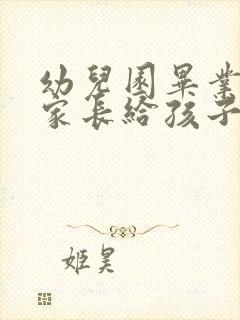 幼兒園畢業
家長給孩子
姬昊